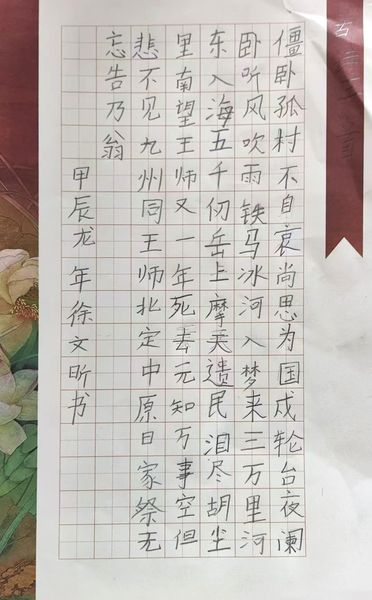 古诗三首
僵卧孤村不自哀尚思为国戍轮台夜阑
卧听风吹雨铁马冰河入梦来三万里河
东入海五千仞岳上摩天遗民泪尽胡尘
里南望王师又一年死去元知万事空但
悲不见九州同王师北定中原日家祭无
忘告乃翁
甲辰龙年徐文昕书